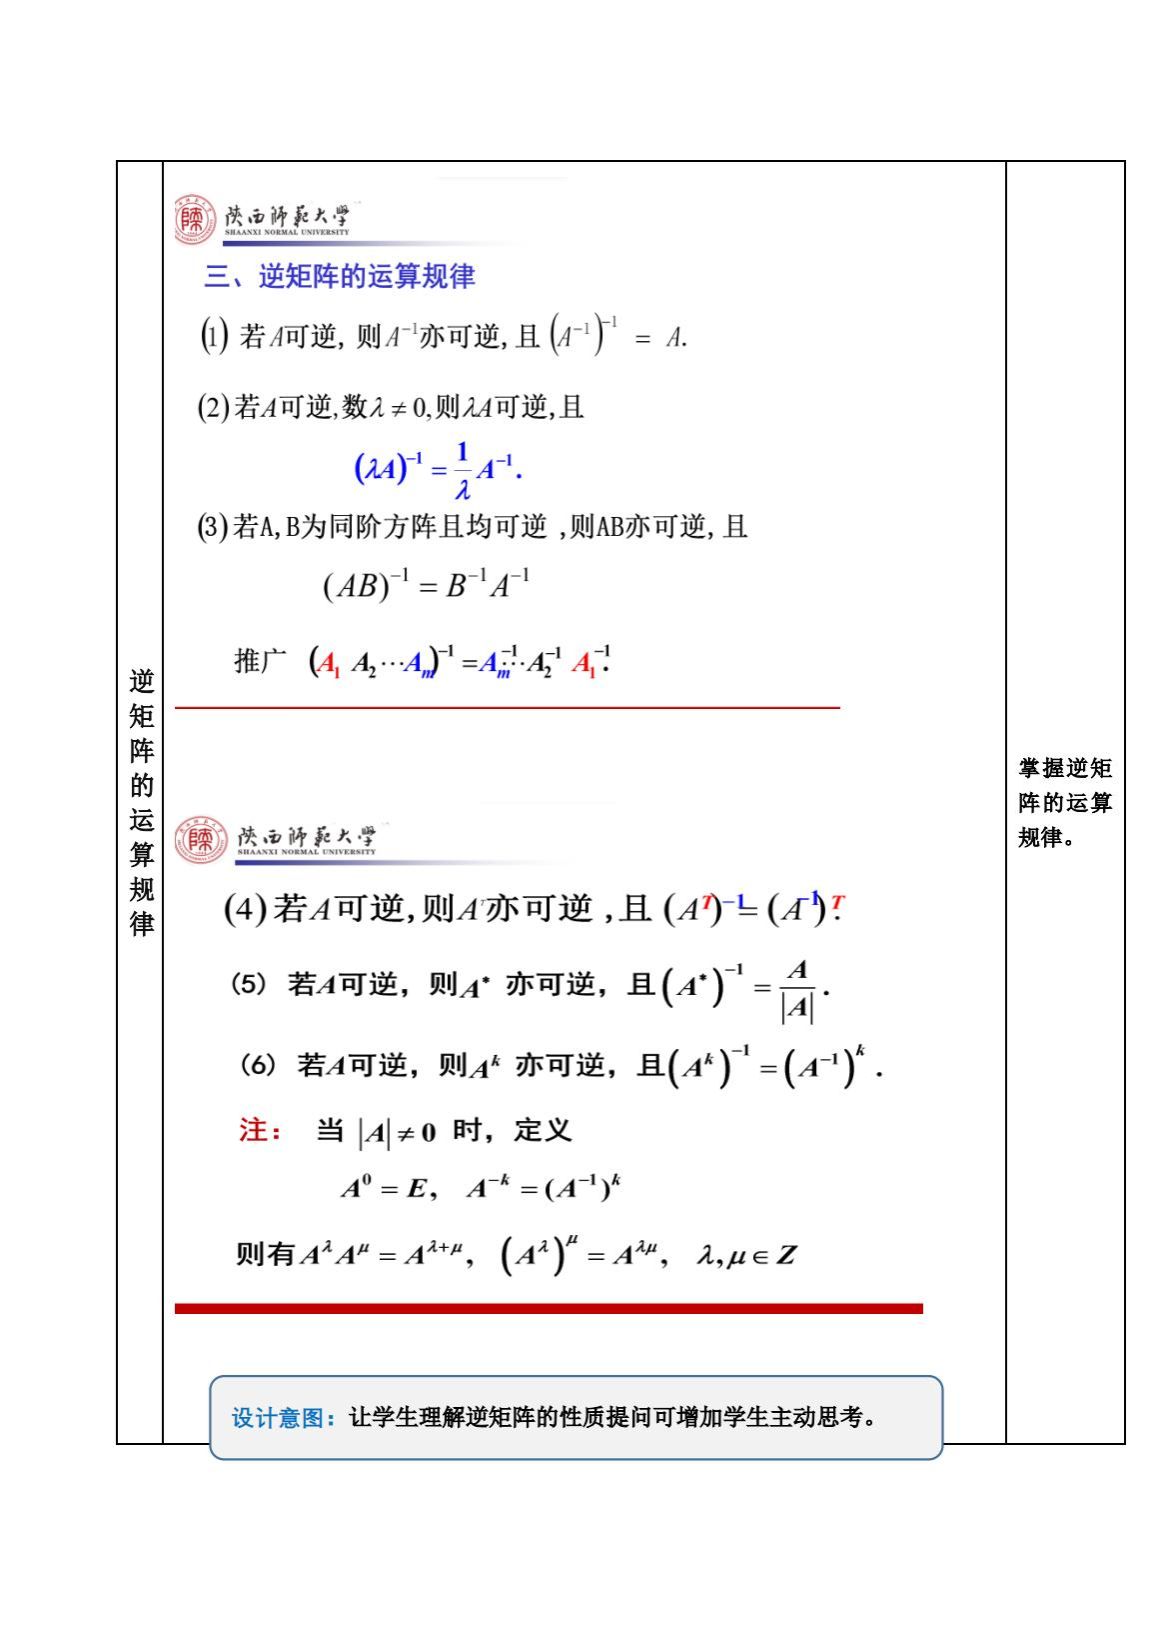 逆矩阵的运算规律
陕西师范大学
SHAANXI NORMAL UNIVERSITY
三、逆矩阵的运算规律
(1) 若A可逆, 则A⁻¹亦可逆, 且 (A⁻¹)⁻¹ = A.
(2) 若A可逆,数λ ≠ 0,则λA可逆,且
(λA)⁻¹ = 1/λ A⁻¹.
(3) 若A, B为同阶方阵且均可逆 ,则AB亦可逆, 且
(AB)⁻¹ = B⁻¹A⁻¹
推广 (A₁ A₂ ⋯Aₘ)⁻¹ =Aₘ⁻¹⋯A₂⁻¹ A₁⁻¹.
陕西师范大学
SHAANXI NORMAL UNIVERSITY
(4) 若A可逆, 则Aᵀ亦可逆 , 且 (Aᵀ)⁻¹= (A⁻¹)ᵀ.
(5) 若A可逆，则A* 亦可逆，且(A*)⁻¹ = A/|A| .
(6) 若A可逆，则Aᵏ 亦可逆，且(Aᵏ)⁻¹ = (A⁻¹)ᵏ .
注： 当 |A| ≠ 0 时，定义
A⁰ = E, A⁻ᵏ = (A⁻¹)ᵏ
则有 A^λ A^μ = A^(λ+μ), (A^λ)^μ = A^(λμ), λ, μ ∈ Z
设计意图：让学生理解逆矩阵的性质提问可增加学生主动思考。
掌握逆矩
阵的运算
规律。